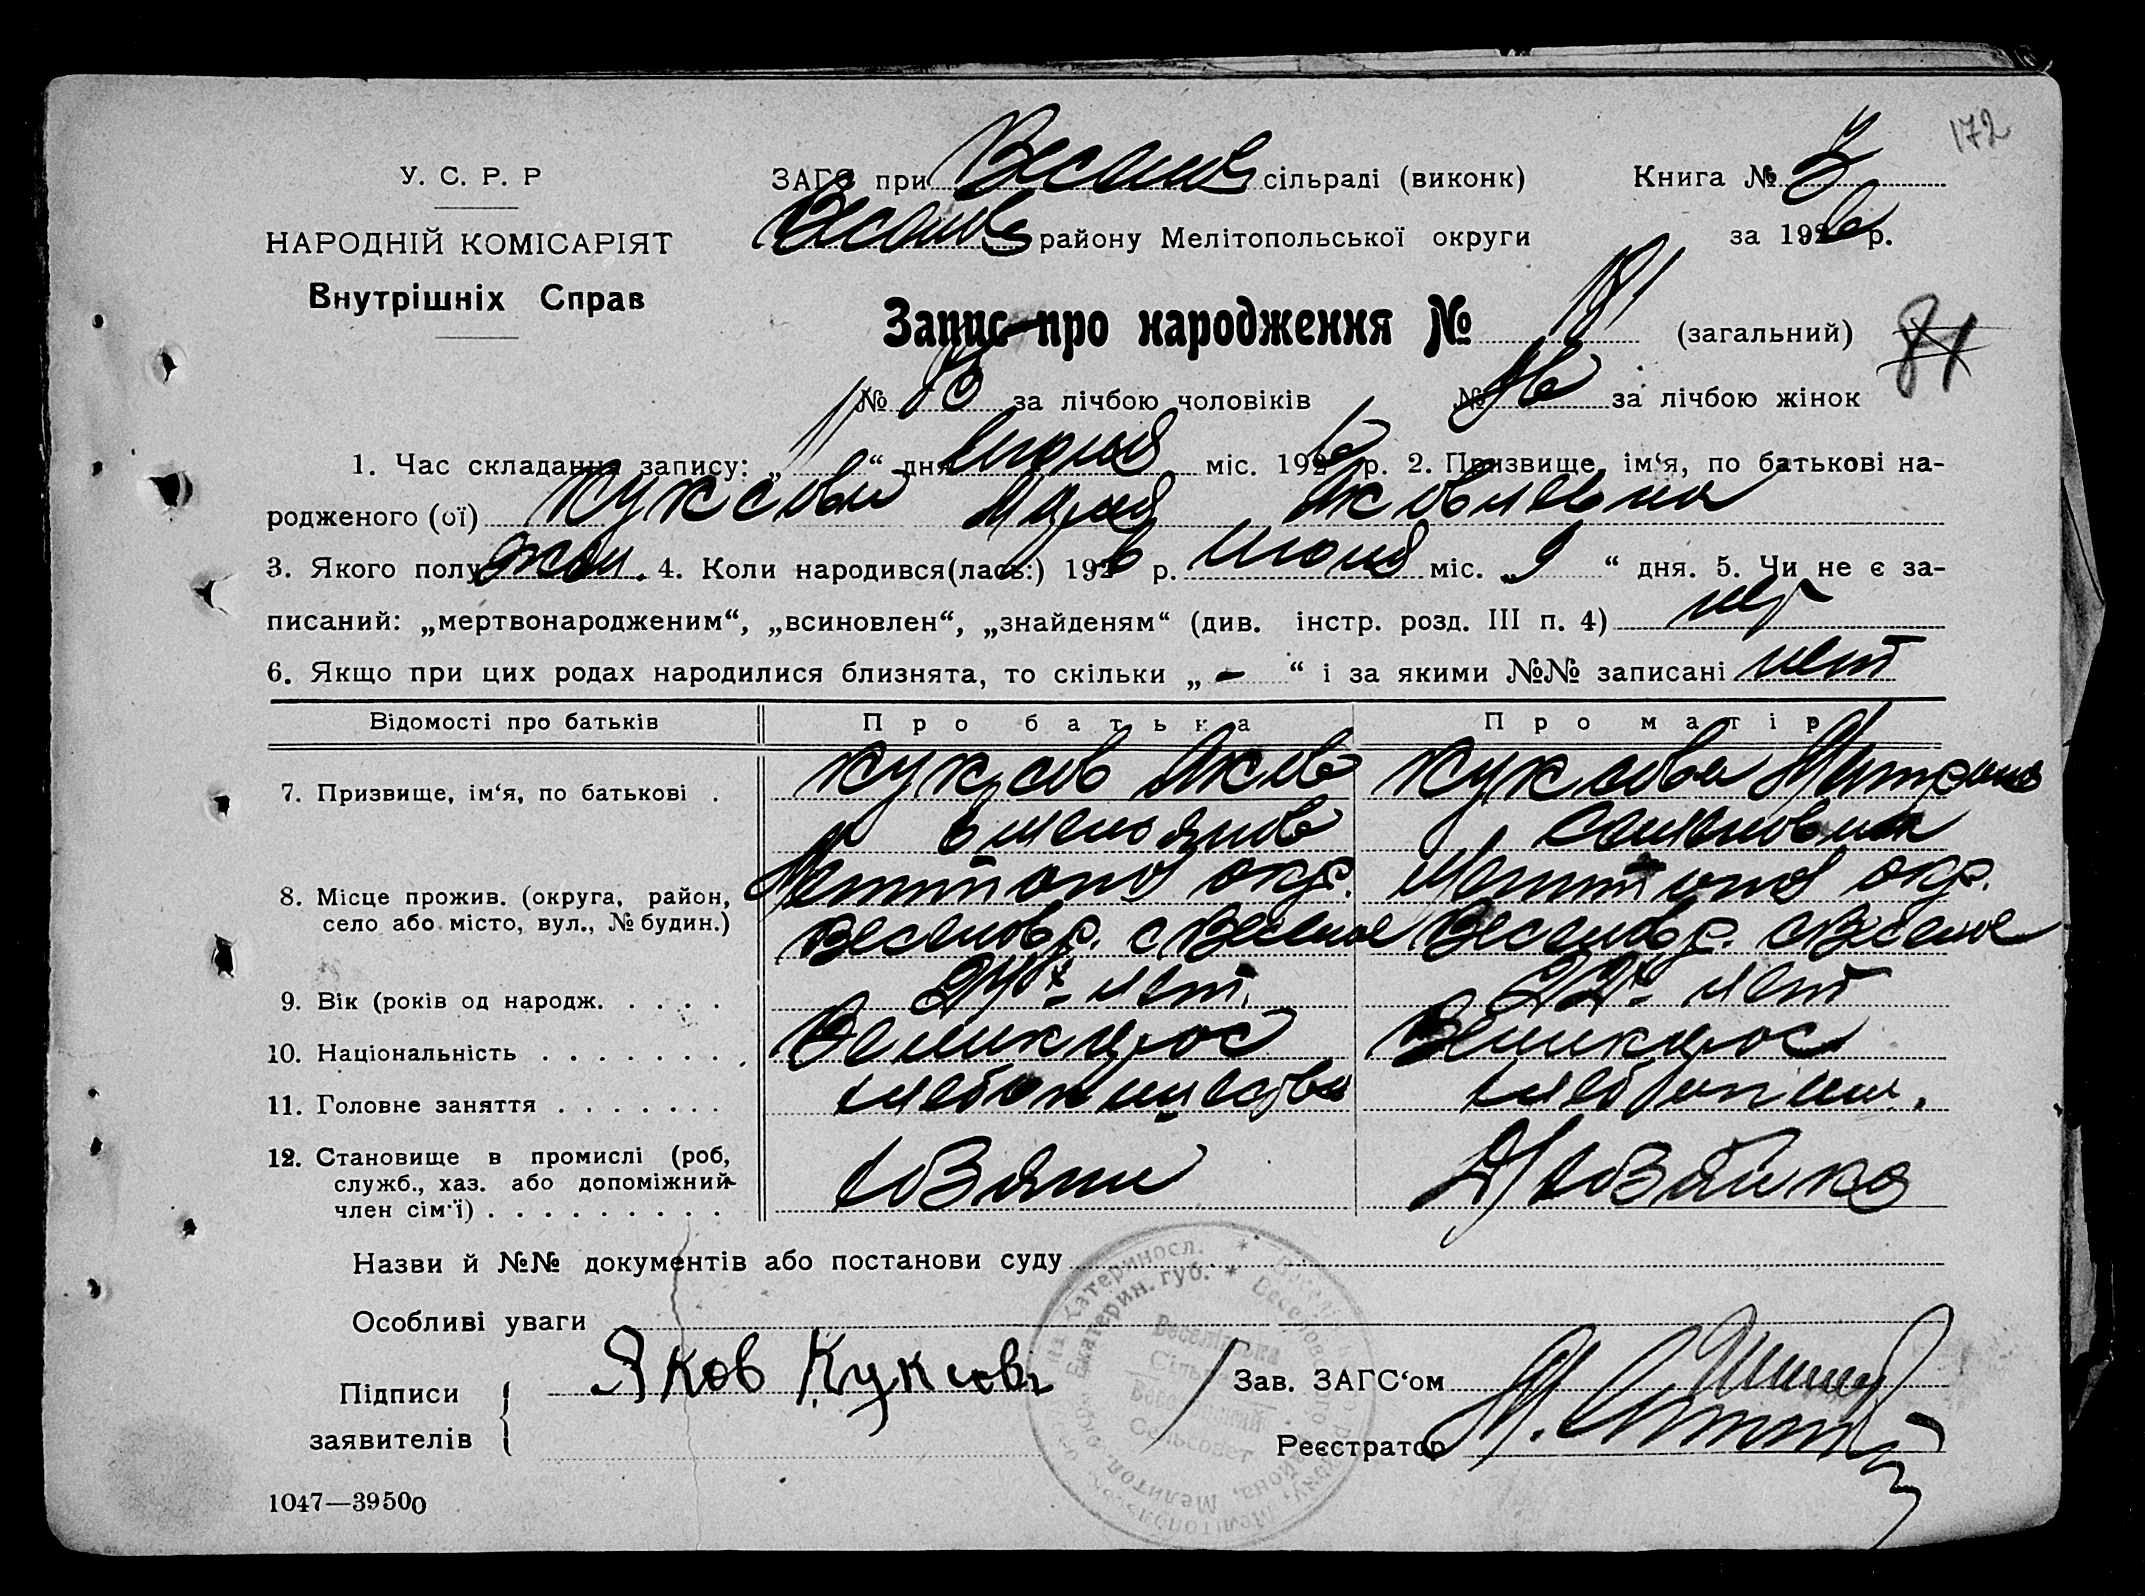 172
У. С. Р. Р
ЗАГС при Веселов сільраді (виконк) Книга №
НАРОДНІЙ КОМІСАРІЯТ
Веселов району Мелітопольської округи за 1926 р.
Внутрішніх Справ
Запис про народження № 181 (загальний)
81
№ за лічбою чоловіків № за лічбою жінок
1. Час складання запису: „11“ дня июня міс. 1926 р. 2. Призвище, ім‘я, по батькові на-
родженого (ої) Куксова Мария Яковлевна
3. Якого полу жен. 4. Коли народився(лась:) 1926 р. июня міс. „9“ дня. 5. Чи не є за-
писаний: „мертвонародженим“, „всиновлен“, „знайденям“ (див. інстр. розд. III п. 4) нет
6. Якщо при цих родах народилися близнята, то скільки „ - “ і за якими №№ записані нет
Відомості про батьків Про батька Про матір
7. Призвище, ім‘я, по батькові . Куксов Яков Куксова
Емельянов Семеновна
8. Місце прожив. (округа, район, Мелитопол окр. Мелитопол окр.
село або місто, вул., № будин.) Веселовр. с Веселое Веселовр. с Веселое
9. Вік (років од народж. . . . . 24 лет. 22 лет
10. Національність . . . . . . . . Великорос Великорос
11. Головне заняття . . . . . . . хлебопашество хлебопаш.
12. Становище в промислі (роб,
служб., хаз. або допоміжний хозяин Д/хозяйка
член сім‘ї) . . . . . . . . .
Назви й №№ документів або постанови суду
Особливі уваги
Підписи
заявителів
Яков Куксовъ
Зав. ЗАГС‘ом
Реєстратор
Екатерин. губ.
Сельсовет
1047—39500